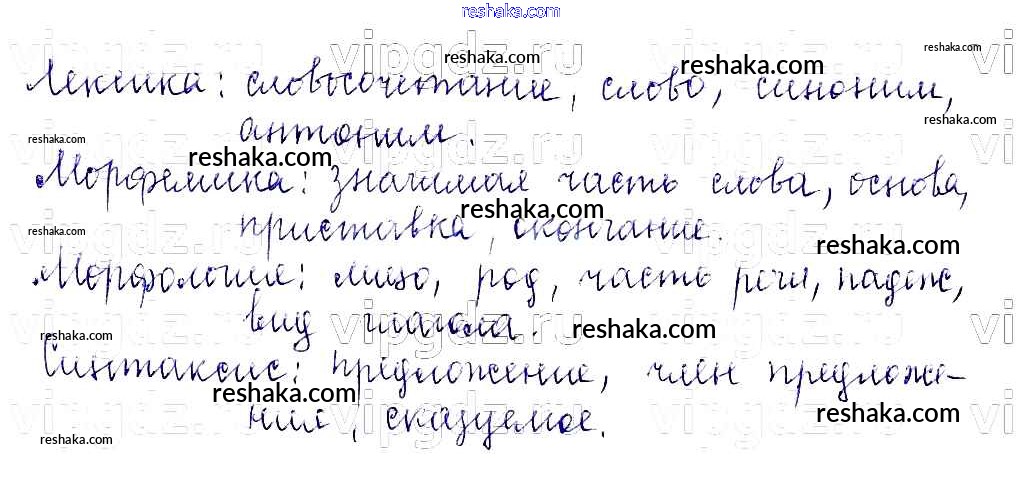 reshaka.com
Лексика: словосочетание, слово, синоним,
антоним.
Морфемика: значимая часть слова, основа,
приставка, окончание.
Морфология: лицо, род, часть речи, падеж,
вид глагола.
Синтаксис: предложение, член предложе-
ния, сказуемое.